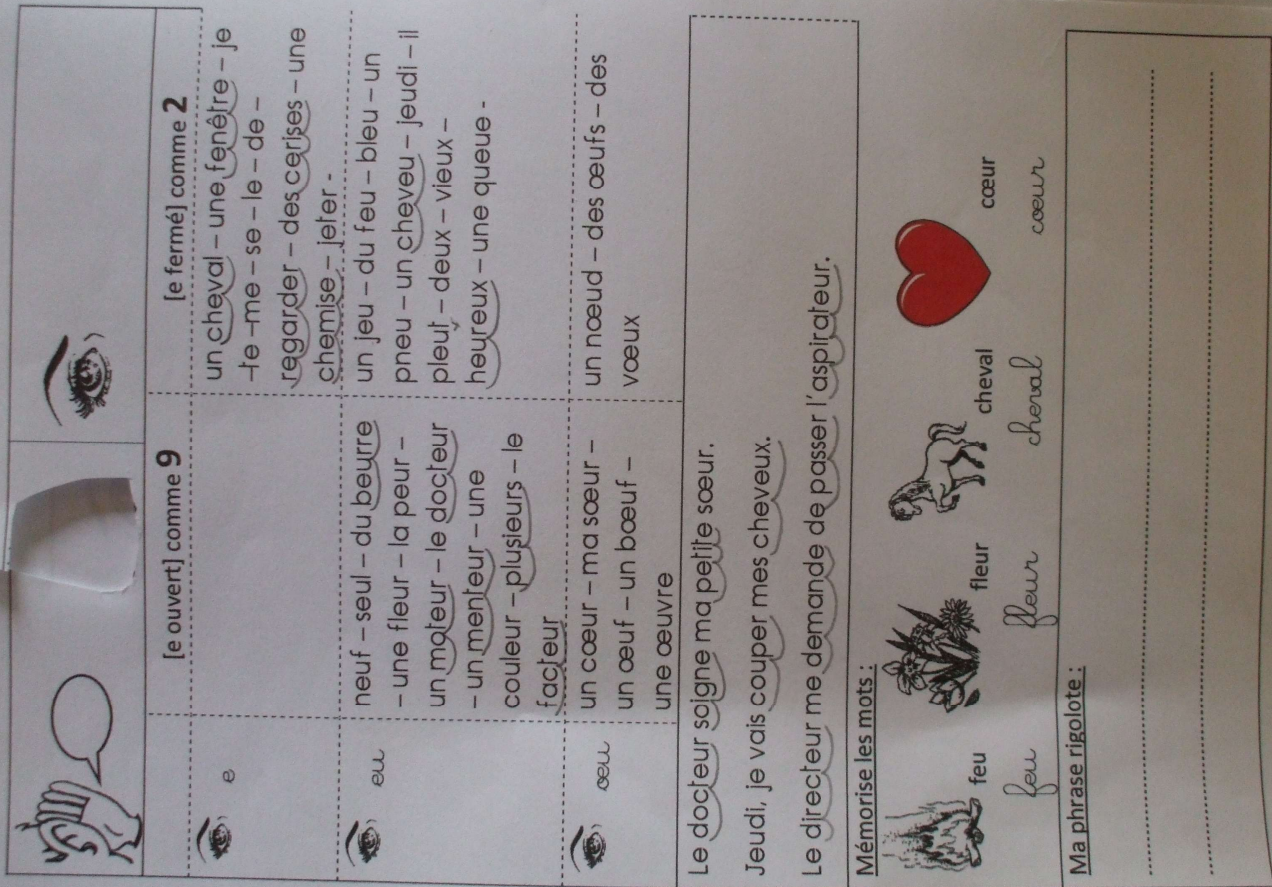 [e ouvert] comme 9
[e fermé] comme 2
e
un cheval – une fenêtre – je
–te –me – se – le – de –
regarder – des cerises – une
chemise – jeter -
eu
neuf – seul – du beurre
– une fleur – la peur –
un moteur – le docteur
– un menteur – une
couleur – plusieurs – le
facteur
un jeu – du feu – bleu – un
pneu – un cheveu – jeudi – il
pleut – deux – vieux –
heureux – une queue -
œu
un cœur – ma sœur –
un œuf – un bœuf –
une œuvre
un nœud – des œufs – des
vœux
Le docteur soigne ma petite sœur.
Jeudi, je vais couper mes cheveux.
Le directeur me demande de passer l'aspirateur.
Mémorise les mots :
feu fleur cheval cœur
feu fleur cheval cœur
Ma phrase rigolote :